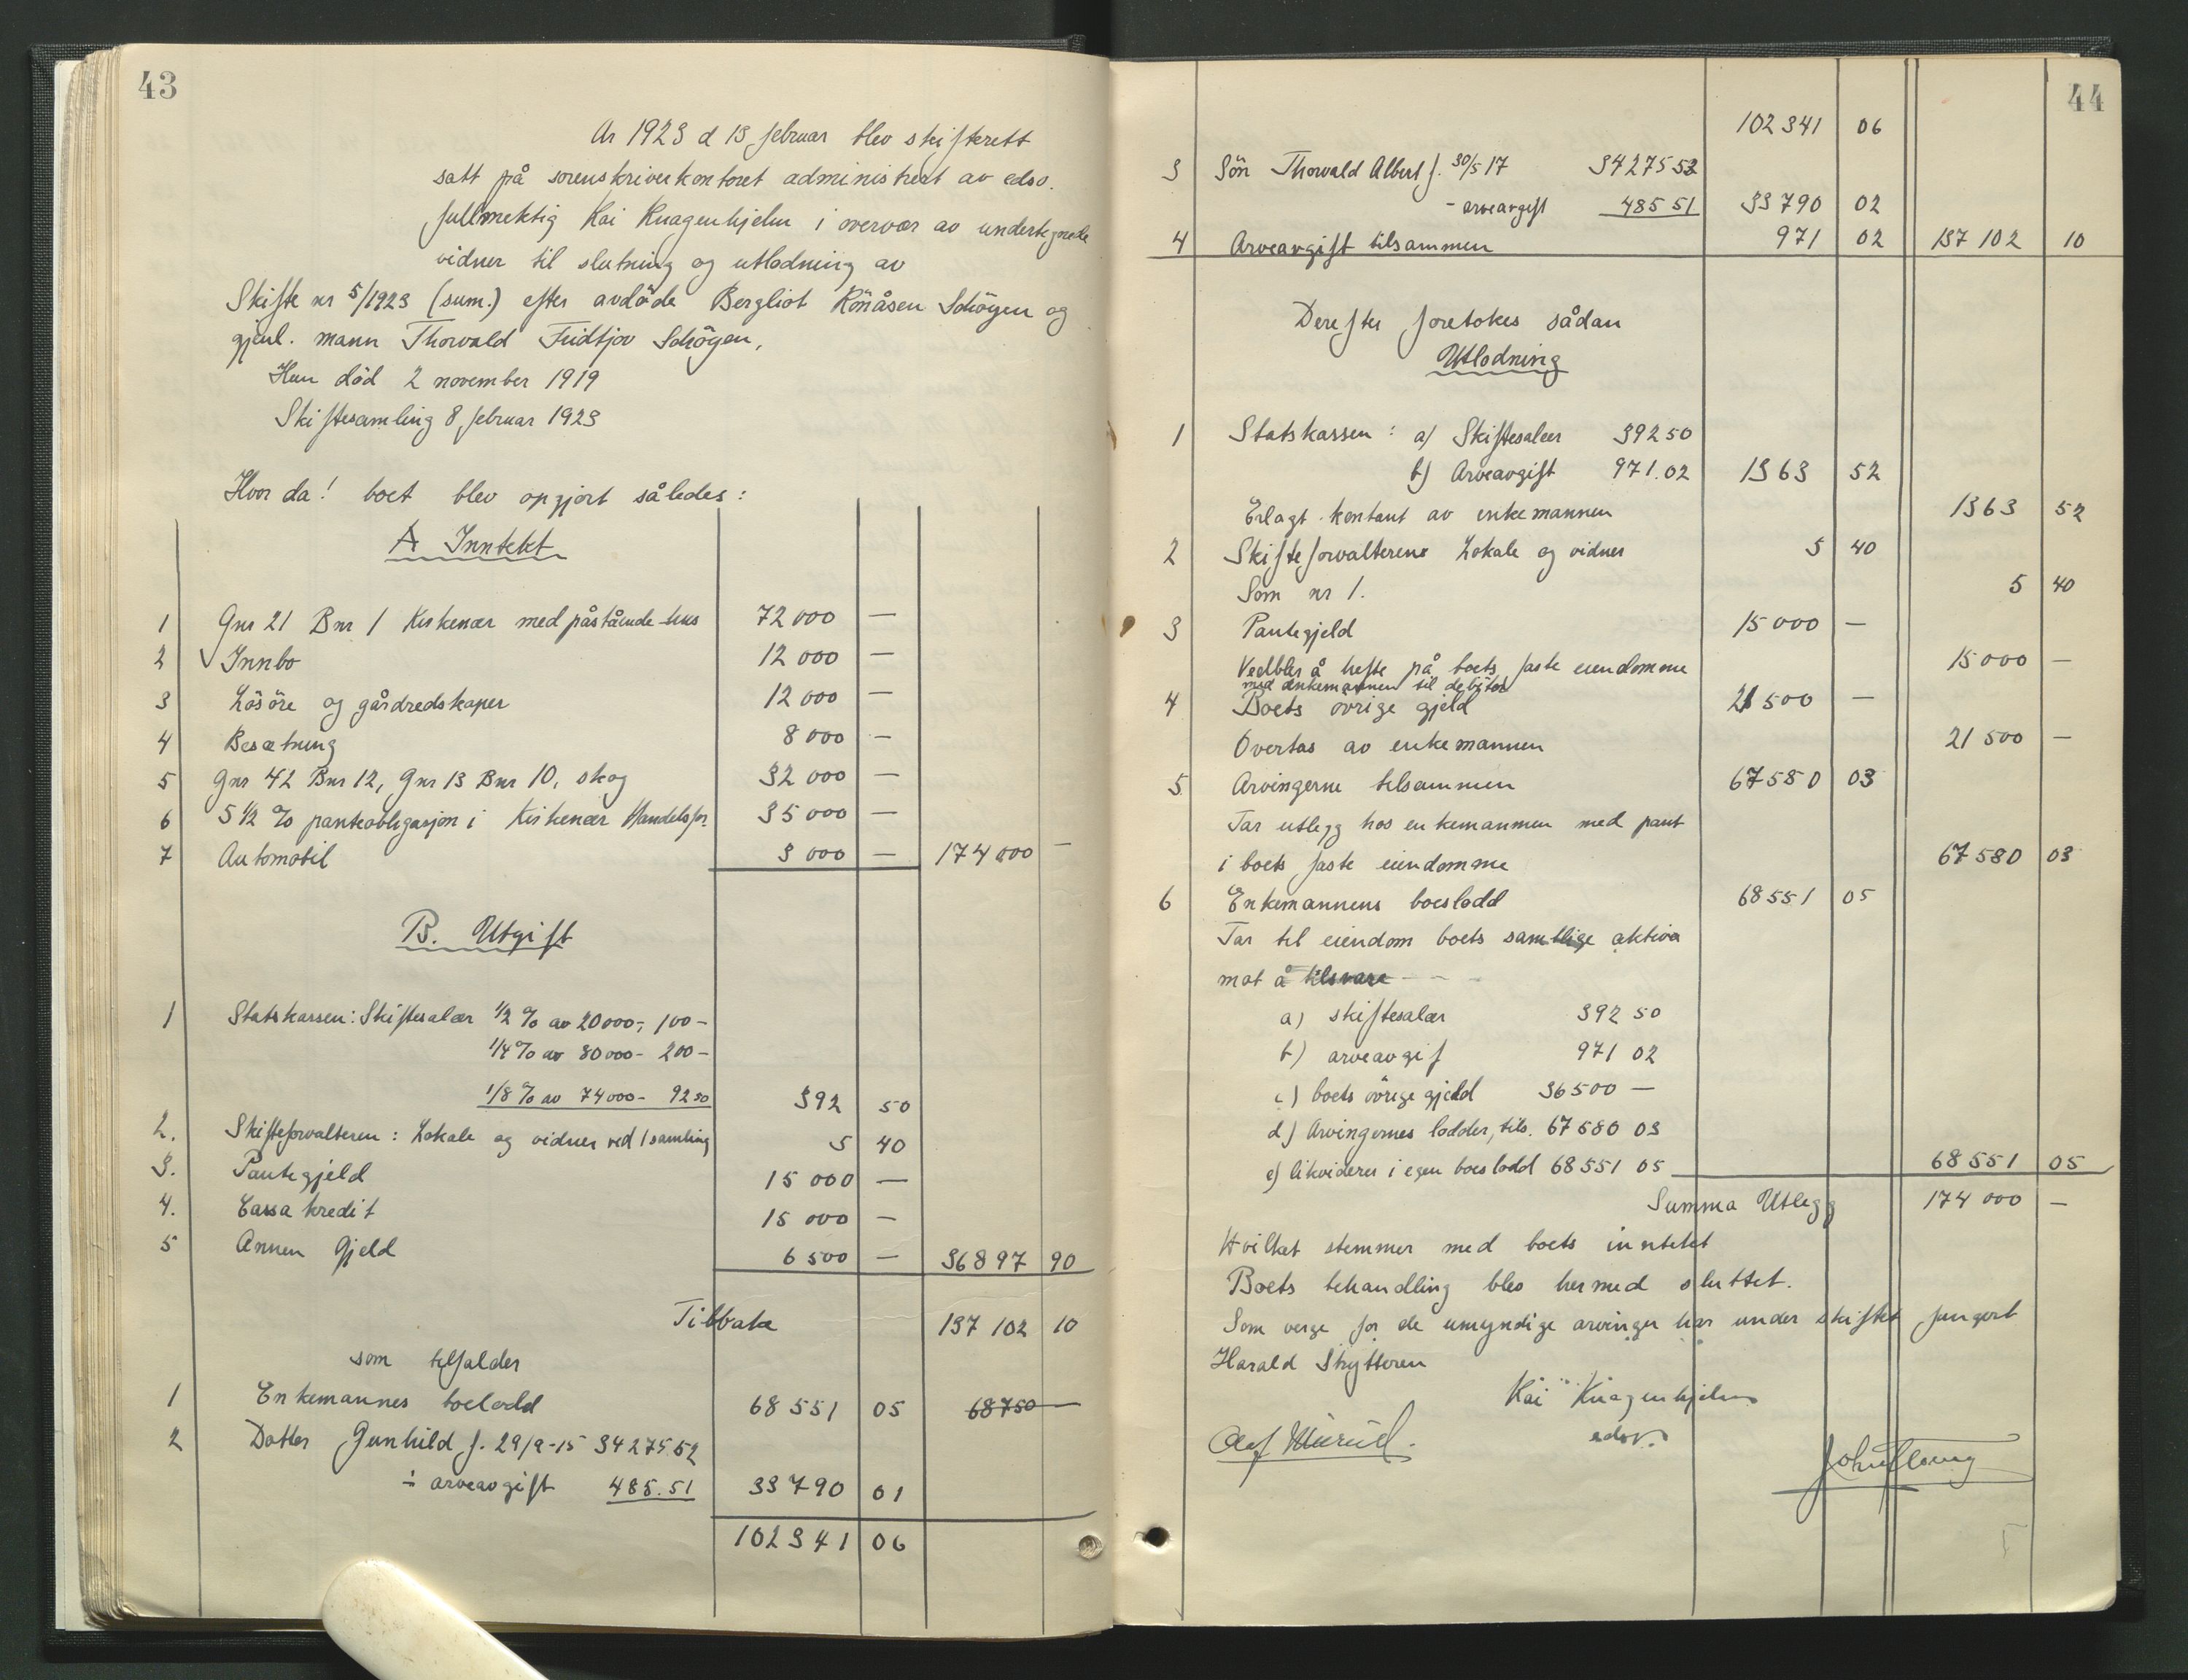 43
År 1923 d 13 februar blev skifterett
satt på sorenskriverkontoret administrert av edsv.
fullmektig Kai Knagenhjelm i overvær av undertegnede
vidner til slutning og utlodning av
Skifte nr 5/1923 (sum.) efter avdöde Bergliot Rönåsen Schöyen og
gjenl. mann Thorvald Fridtjov Schöyen,
Hun död 2 november 1919
Skiftesamling 8 februar 1923
Hvor da! boet blev opgjort således:
A Inntekt
1 Gnr 21 Bnr 1 Kirkenær med påstående hus 72 000 —
2 Innbo 12 000 —
3 Lösöre og gårdredskaper 12 000 —
4 Besætning 8 000 —
5 Gnr 42 Bnr 12, Gnr 13 Bnr 10, skog 32 000 —
6 5 1/2 % panteobligasjon i Kirkenær Handelsfor. 35 000 —
7 Automobil 3 000 — 174 000 —
B. Utgift
1 Statskassen: Skiftesalær 1/2 % av 20000,- 100 -
1/4 % av 80000 - 200 -
1/8 % av 74000 - 92 50 392 50
2. Skifteforvalteren: Lokale og vidner ved 1 samling 5 40
3. Pantegjeld 15 000 —
4. Cassakredit 15 000 —
5 Annen Gjeld 6 500 — 36897 90
Tilbake 137 102 10
som tilfalder
1 Enkemannes boslodd 68 551 05 68750 —
2 Datter Gunhild f. 29/9-15 34275.52
÷ arveavgift 485.51 33790 01
102341 06
44
102341 06
3 Sön Thorvald Albert f. 30/5 17 34275 53
- arveavgift 485 51 33790 02
4 Arveavgift tilsammen 971 02 137 102 10
Derefter foretokes sådan
Utlodning
1 Statskassen: a) Skiftesalær 392 50
b) Arveavgift 971.02 1363 52
Erlagt kontant av enkemannen 1363 52
2 Skifteforvalteren Lokale og vidner 5 40
Som nr 1. 5 40
3 Pantegjeld 15 000 —
Vedblir å hefte på boets faste eiendomme 15 000 —
med enkemannen til debitor
4 Boets övrige gjeld 21 500 —
Overtas av enkemannen 21 500 —
5 Arvingerne tilsammen 67 580 03
Tar utlegg hos enkemannen med pant
i boets faste eiendomme 67 580 03
6 Enkemannens boslodd 68 551 05
Tar til eiendom boets samtlige aktiva
mot å tilsvare
a) skiftesalær 392 50
b) arveavgif 971 02
c) boets övrige gjeld 36500 —
d) Arvingernes lodder, tils. 67580 03
e) likviderer i egen boslodd 68551 05 68 551 05
Summa Utlegg 174 000 —
Hvilket stemmer med boets inntekt
Boets behandling blev hermed sluttet.
Som verge for de umyndige arvinger har under skiftet fungert
Harald Skytteren
Kai Knagenhjelm
edsv.